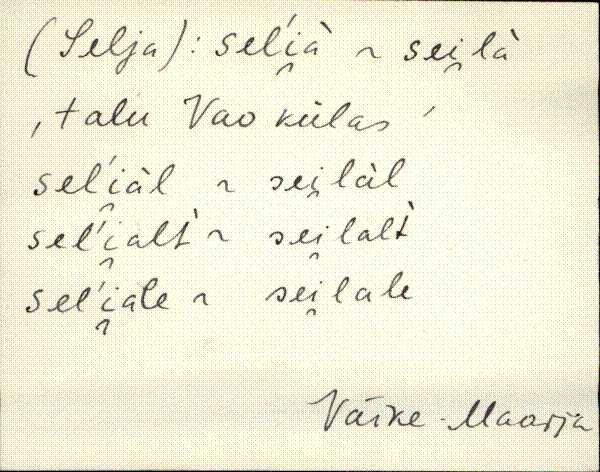 (Selja): sel'i̯à ~ sei̯là
‚talu Vao külas'
sel'i̯àl ~ sei̯làl
sel'i̯alt̀ ~ sei̯lalt̀
sel'i̯ale ~ sei̯lale
Väike-Maarja